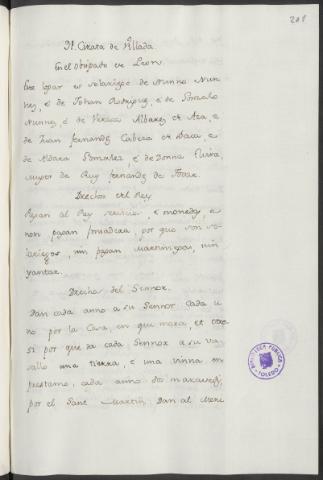 201
En el obispado de Leon.
Este logar es solariego de Nunno Nun
nez, e de Johan Rodriguez, e de Gonzalo
Nunnez, e de Albarez de Aza, e
de Juan fernandez Cabeza de Baca, e
de Aldara Gonzalez, e de Donna Elvira
muger de Ruy fernandez de Tovar.
Derechos del Rey
Pagan al Rey servicios, e monedas, e
non pagan fonsadera, por que son so-
lariegos, nin pagan martiniega, nin
yantar.
Derechos del Sennor.
Dan cada anno a su Sennor cada u
no por la Casa, en que mora, et otro
si por que da cada Sennor a su va
sallo una tierra, e una vinna en
prestamo, cada anno dos maravedis
por el Sant Martin. Dan al Meri
BIBLIOTECA PUBLICA
TOLEDO